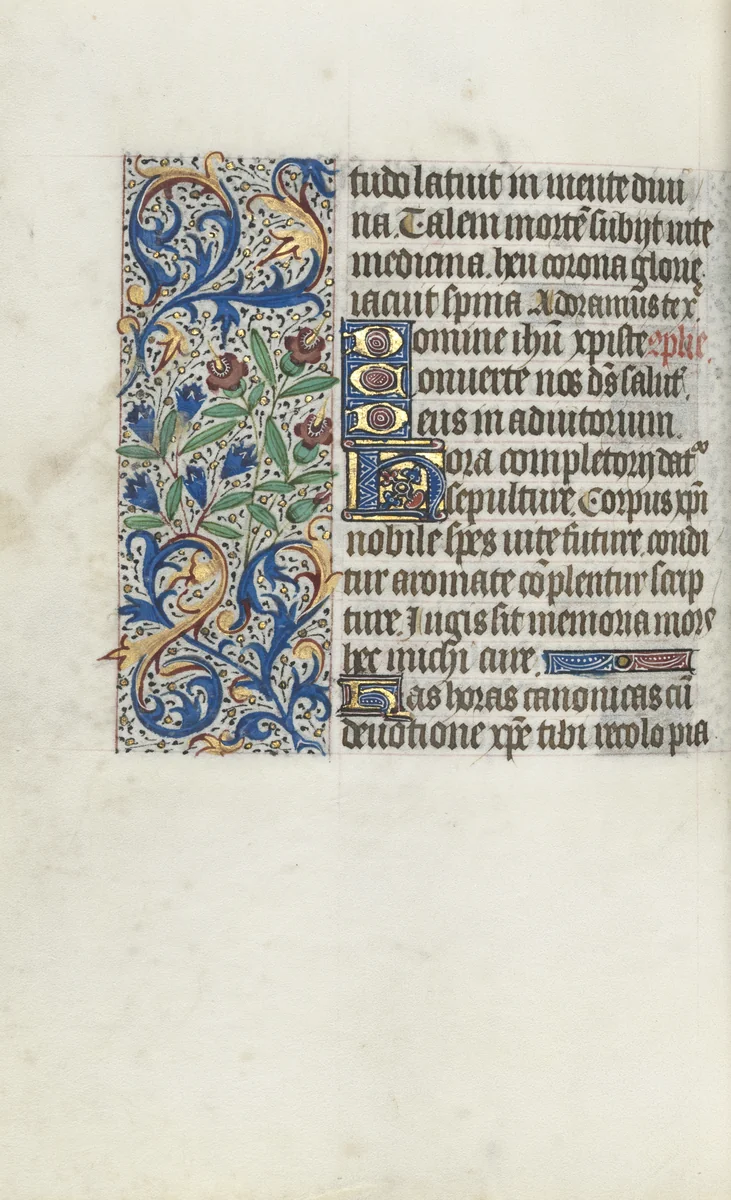 tudo latuit in mente diui
na Talem mortē subijt uite
medicina. heu corona glorie
iacuit spina Adoramus te x̄
Domine ihū xp̄iste Cōplie.
Conuerte nos ds̄ salut'.
Deus in adiutorium.
Hora completorij dat̄
sepulture. Corpus xp̄i
nobile spes uite future. condi
tur aromate cōplentur scrip
ture. Jugis sit memoria mors
hec michi cure.
Has horas canonicas cū
deuotione xp̄e tibi recolo pia